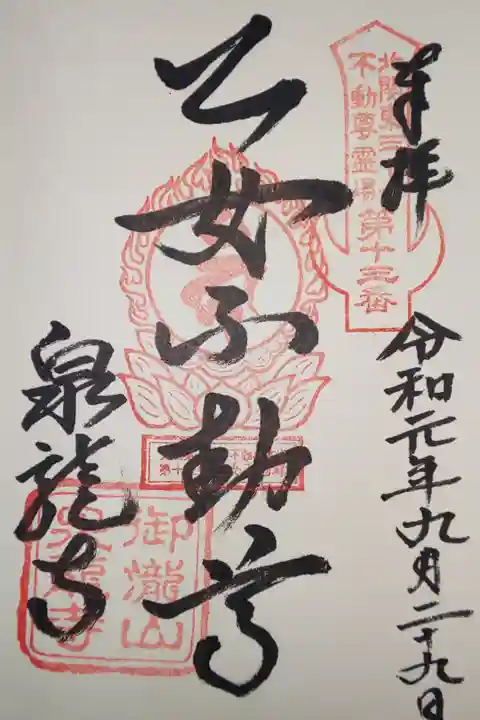 奉拝
北関東三十六
不動尊霊場第十三番
令和元年九月二十九日
乙女不動尊
泉龍寺
御瀧山
泉龍寺